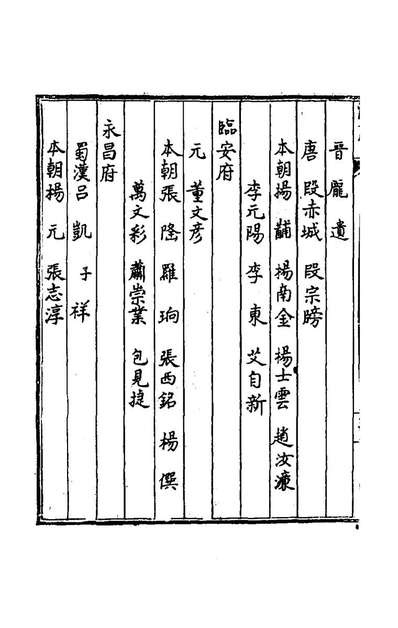 晉 龎遺
唐 段赤城 段宗牓
本朝楊黼 楊南金 楊士雲 趙汝濂
李元陽 李東 艾自新
臨安府
元 董文彦
本朝張隆 羅珦 張西銘 楊僎
萬文彩 蕭崇業 包見捷
永昌府
蜀漢吕凱 子祥
本朝楊元 張志淳